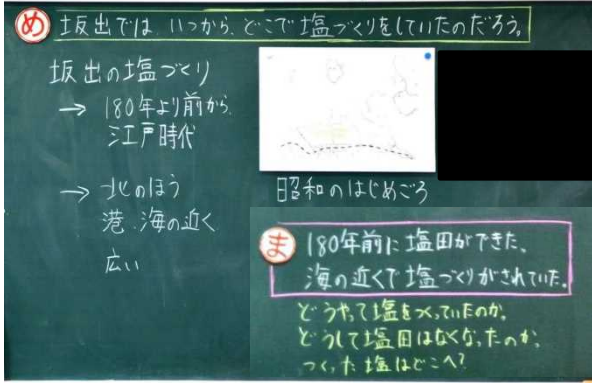 め 坂出では いつから、どこで塩づくりをしていたのだろう。
坂出の塩づくり
→ 180年より前から
江戸時代
→ 北のほう
港、海の近く
広い
昭和のはじめごろ
ま 180年前に塩田ができた。
海の近くで塩づくりがされていた。
どうやって塩をつくっていたのか。
どうして塩田はなくなったのか。
つくった塩はどこへ？